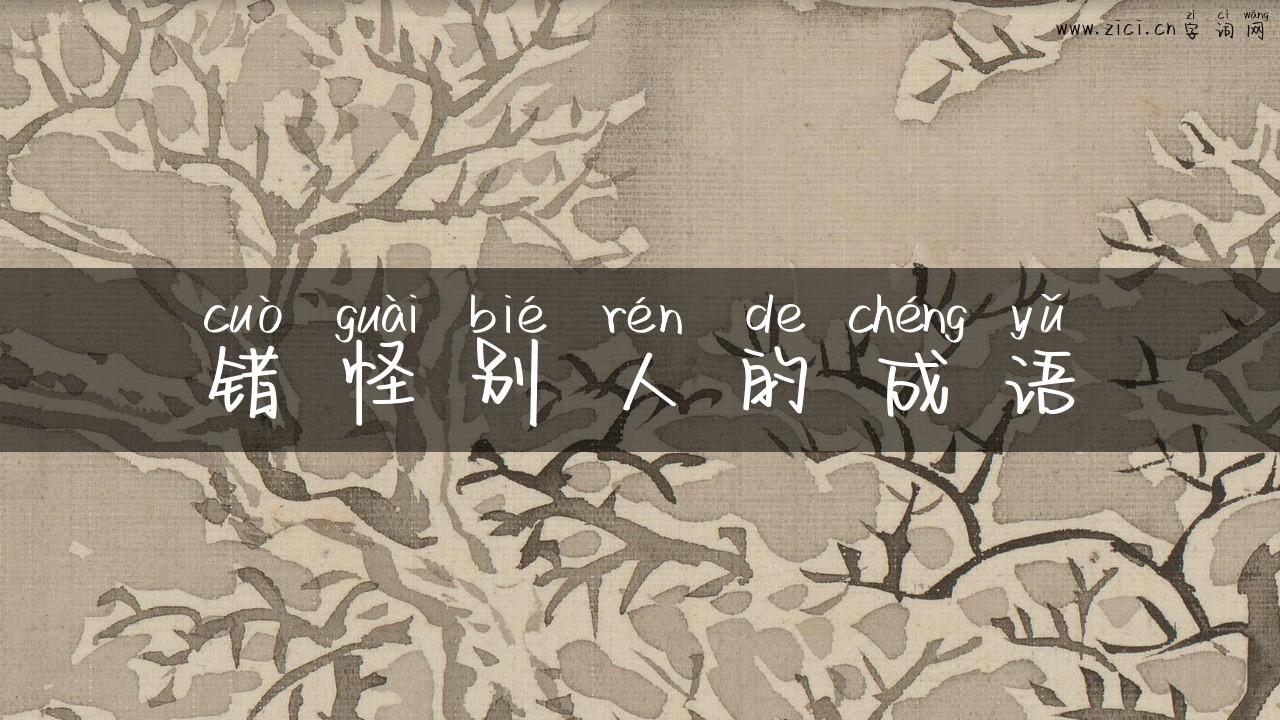 zì cí wǎng
www.zici.cn字词网
cuò guài bié rén de chéng yǔ
错怪别人的成语